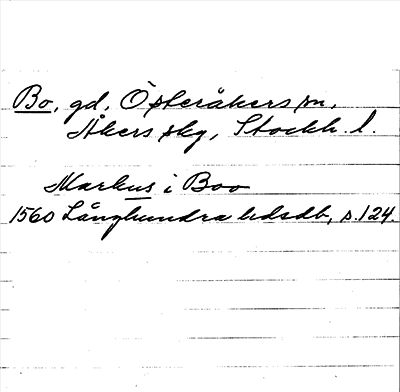 Bo, gd, Österåkers sn,
Åkers skg, Stockh. l.
Markus i Boo
1560 Långhundra hdsdb, s.124.